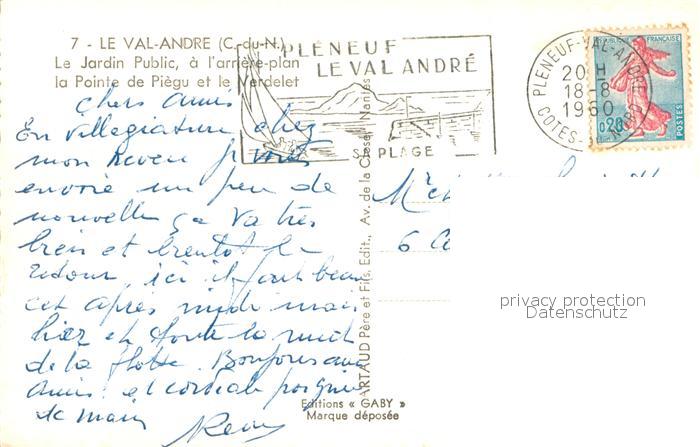 7 - LE VAL-ANDRE (C.-du-N.)
Le Jardin Public, à l'arrière-plan
la Pointe de Piègu et le Verdelet
PLÉNEUF
LE VAL ANDRÉ
SA PLAGE
PLENEUF-VAL-ANDRE
20 H
18-8
1960
COTES-DU-NORD
REPUBLIQUE FRANÇAISE
0,20
POSTES
chers amis
En villegiature chez
mon neveu je vous
envoie un peu de
nouvelle ça va très
bien et bientot le
retour, ici il fait beau
cet après midi mais
hier et toute la nuit
de la flotte. Bonjour aux
amis et cordiale poignée
de main
Remy
6
ARTAUD Père et Fils, Edit., Av. de la Close, Nantes
Editions « GABY »
Marque déposée
privacy protection
Datenschutz